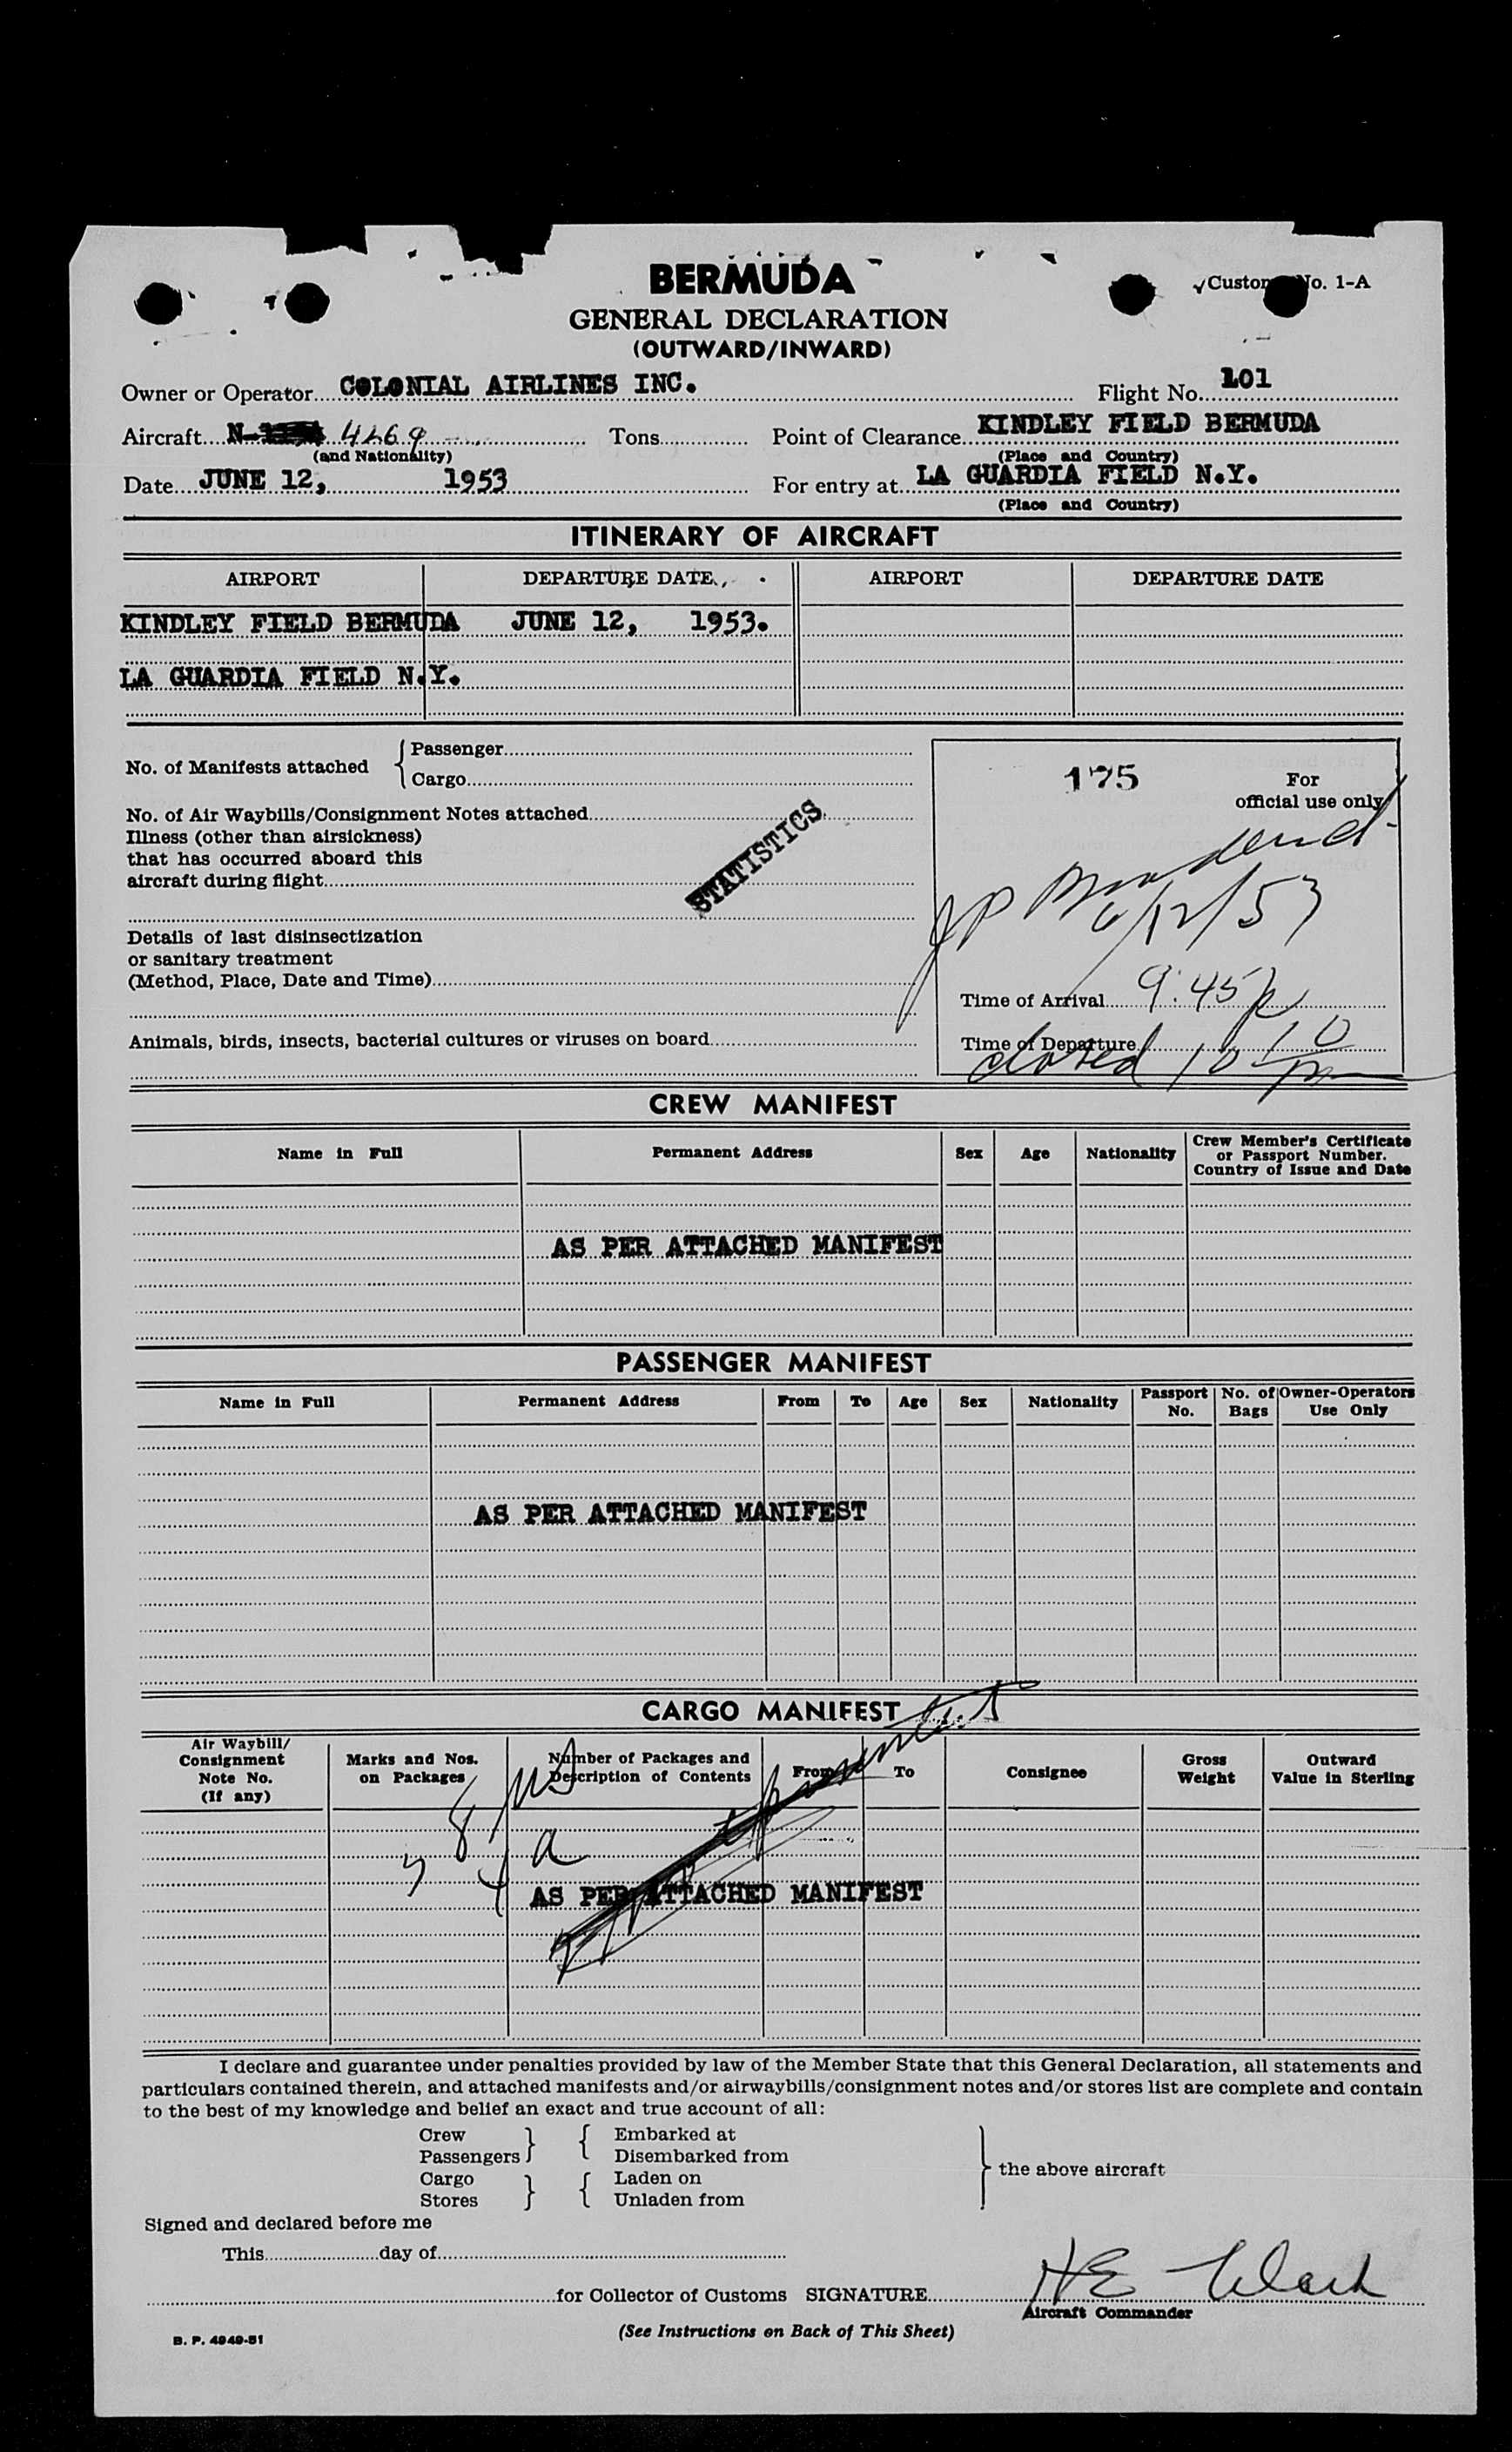 BERMUDA
GENERAL DECLARATION
(OUTWARD/INWARD)
Custom No. 1-A
Owner or Operator COLONIAL AIRLINES INC. Flight No. 101
Aircraft N- 4269 Tons Point of Clearance KINDLEY FIELD BERMUDA
(and Nationality) (Place and Country)
Date JUNE 12, 1953 For entry at LA GUARDIA FIELD N.Y.
(Place and Country)
ITINERARY OF AIRCRAFT
AIRPORT DEPARTURE DATE AIRPORT DEPARTURE DATE
KINDLEY FIELD BERMUDA JUNE 12, 1953.
LA GUARDIA FIELD N.Y.
No. of Manifests attached { Passenger
Cargo
No. of Air Waybills/Consignment Notes attached
Illness (other than airsickness)
that has occurred aboard this
aircraft during flight
STATISTICS
Details of last disinsectization
or sanitary treatment
(Method, Place, Date and Time)
Animals, birds, insects, bacterial cultures or viruses on board
175 For
official use only
6/12/53
Time of Arrival 9:45 p
Time of Departure
closed 10 10 pm
CREW MANIFEST
Name in Full Permanent Address Sex Age Nationality Crew Member's Certificate
or Passport Number.
Country of Issue and Date
AS PER ATTACHED MANIFEST
PASSENGER MANIFEST
Name in Full Permanent Address From To Age Sex Nationality Passport No. No. of Bags Owner-Operators Use Only
AS PER ATTACHED MANIFEST
CARGO MANIFEST
Air Waybill/
Consignment
Note No.
(If any)
Marks and Nos.
on Packages
Number of Packages and
Description of Contents
From To Consignee Gross
Weight
Outward
Value in Sterling
8 US
4 a
AS PER ATTACHED MANIFEST
I declare and guarantee under penalties provided by law of the Member State that this General Declaration, all statements and
particulars contained therein, and attached manifests and/or airwaybills/consignment notes and/or stores list are complete and contain
to the best of my knowledge and belief an exact and true account of all:
Crew } { Embarked at
Passengers Disembarked from
Cargo } { Laden on } the above aircraft
Stores Unladen from
Signed and declared before me
This day of
for Collector of Customs SIGNATURE H E Clark
Aircraft Commander
(See Instructions on Back of This Sheet)
B. P. 4949-51